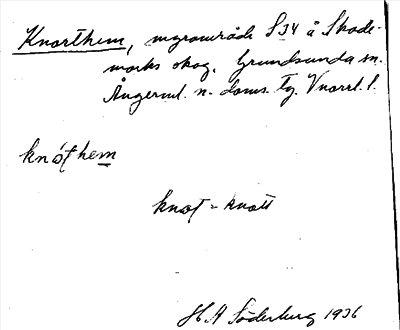 Knorthem, myrområde S34 å Skade-
marks skog. Grundsunda sn.
Ångerml. n. doms. Tg. Vnorrl. l.
knóthem
knot = knott
H. A Söderberg 1936